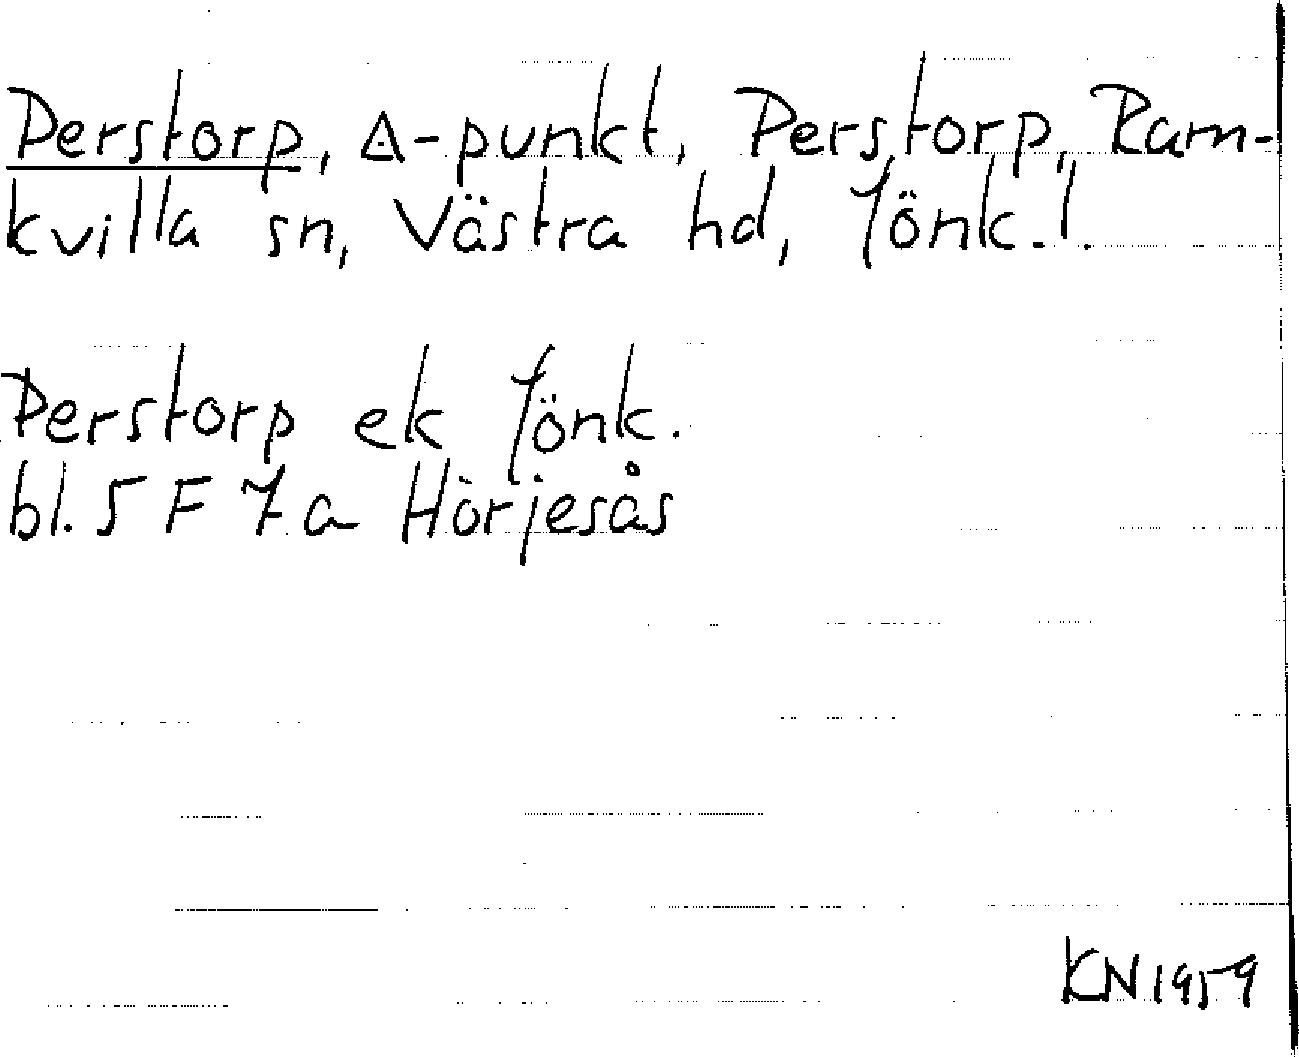 Perstorp, ∆-punkt, Perstorp, Ram-
kvilla sn, Västra hd, Jönk. l.
Perstorp ek Jönk.
bl. 5 F 7 a Hörjesås
KN 1959